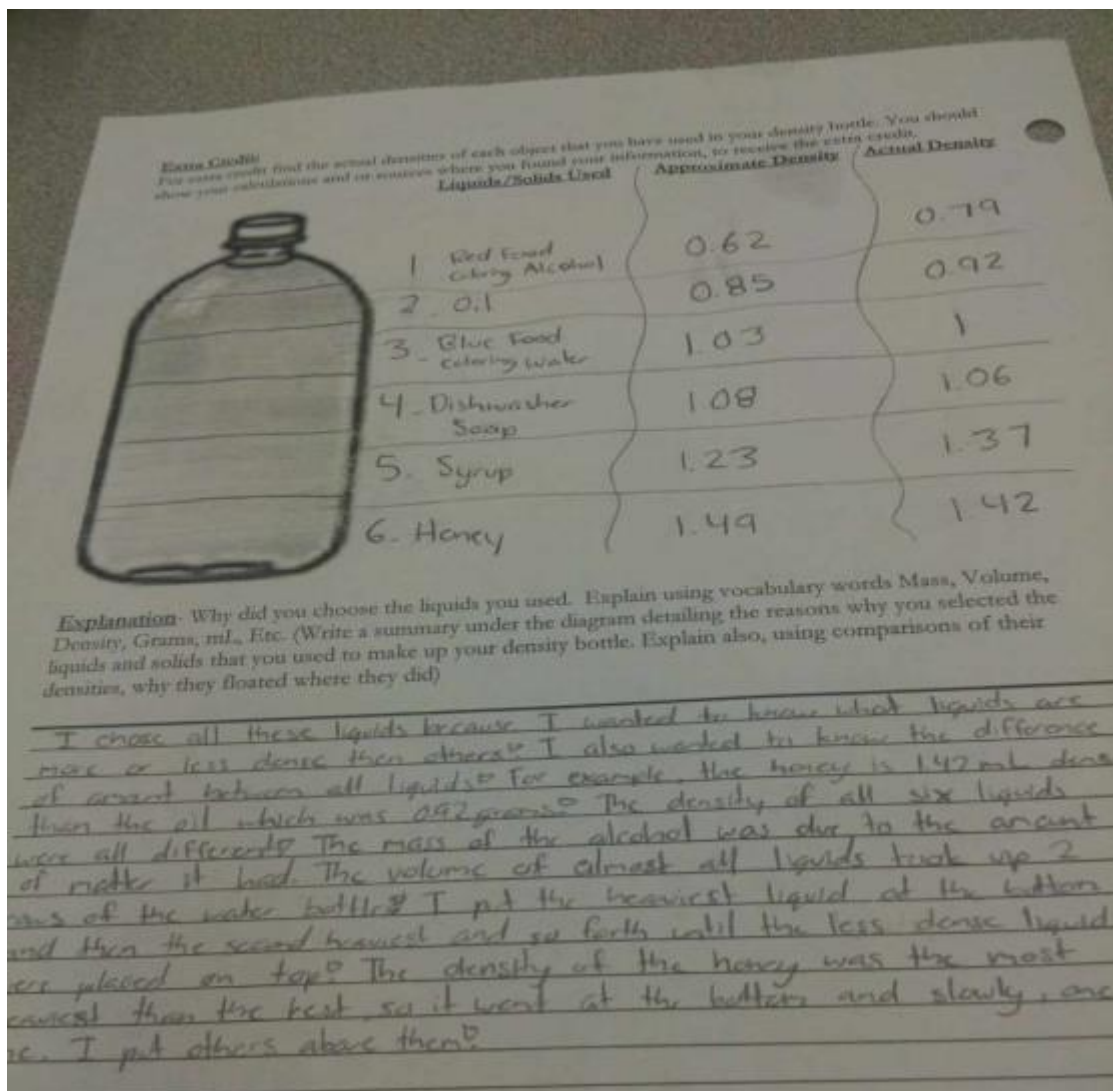 Extra Credit:
For extra credit find the actual densities of each object that you have used in your density bottle. You should
show your calculations and or sources where you found your information, to receive the extra credit.
Liquids/Solids Used Approximate Density Actual Density
1 Red Food Coloring Alcohol 0.62 0.79
2. Oil 0.85 0.92
3. Blue Food Coloring Water 1.03 1
4. Dishwasher Soap 1.08 1.06
5. Syrup 1.23 1.37
6. Honey 1.49 1.42
Explanation- Why did you choose the liquids you used. Explain using vocabulary words Mass, Volume,
Density, Grams, mL, Etc. (Write a summary under the diagram detailing the reasons why you selected the
liquids and solids that you used to make up your density bottle. Explain also, using comparisons of their
densities, why they floated where they did)
I chose all these liquids because I wanted to know what liquids are
more or less dense then others. I also wanted to know the difference
of amount between all liquids. For example, the honey is 1.42 mL dens
than the oil which was 0.92 grams. The density of all six liquids
were all different. The mass of the alcohol was due to the amount
of matter it had. The volume of almost all liquids took up 2
of the water bottle. I put the heaviest liquid at the bottom
and then the second heaviest and so forth until the less dense liquid
placed on top. The density of the honey was the most
than the rest, so it went at the bottom and slowly, one
I put others above them.